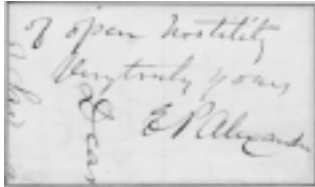 of open hostility
Very truly yours
E P Alexander
Dear